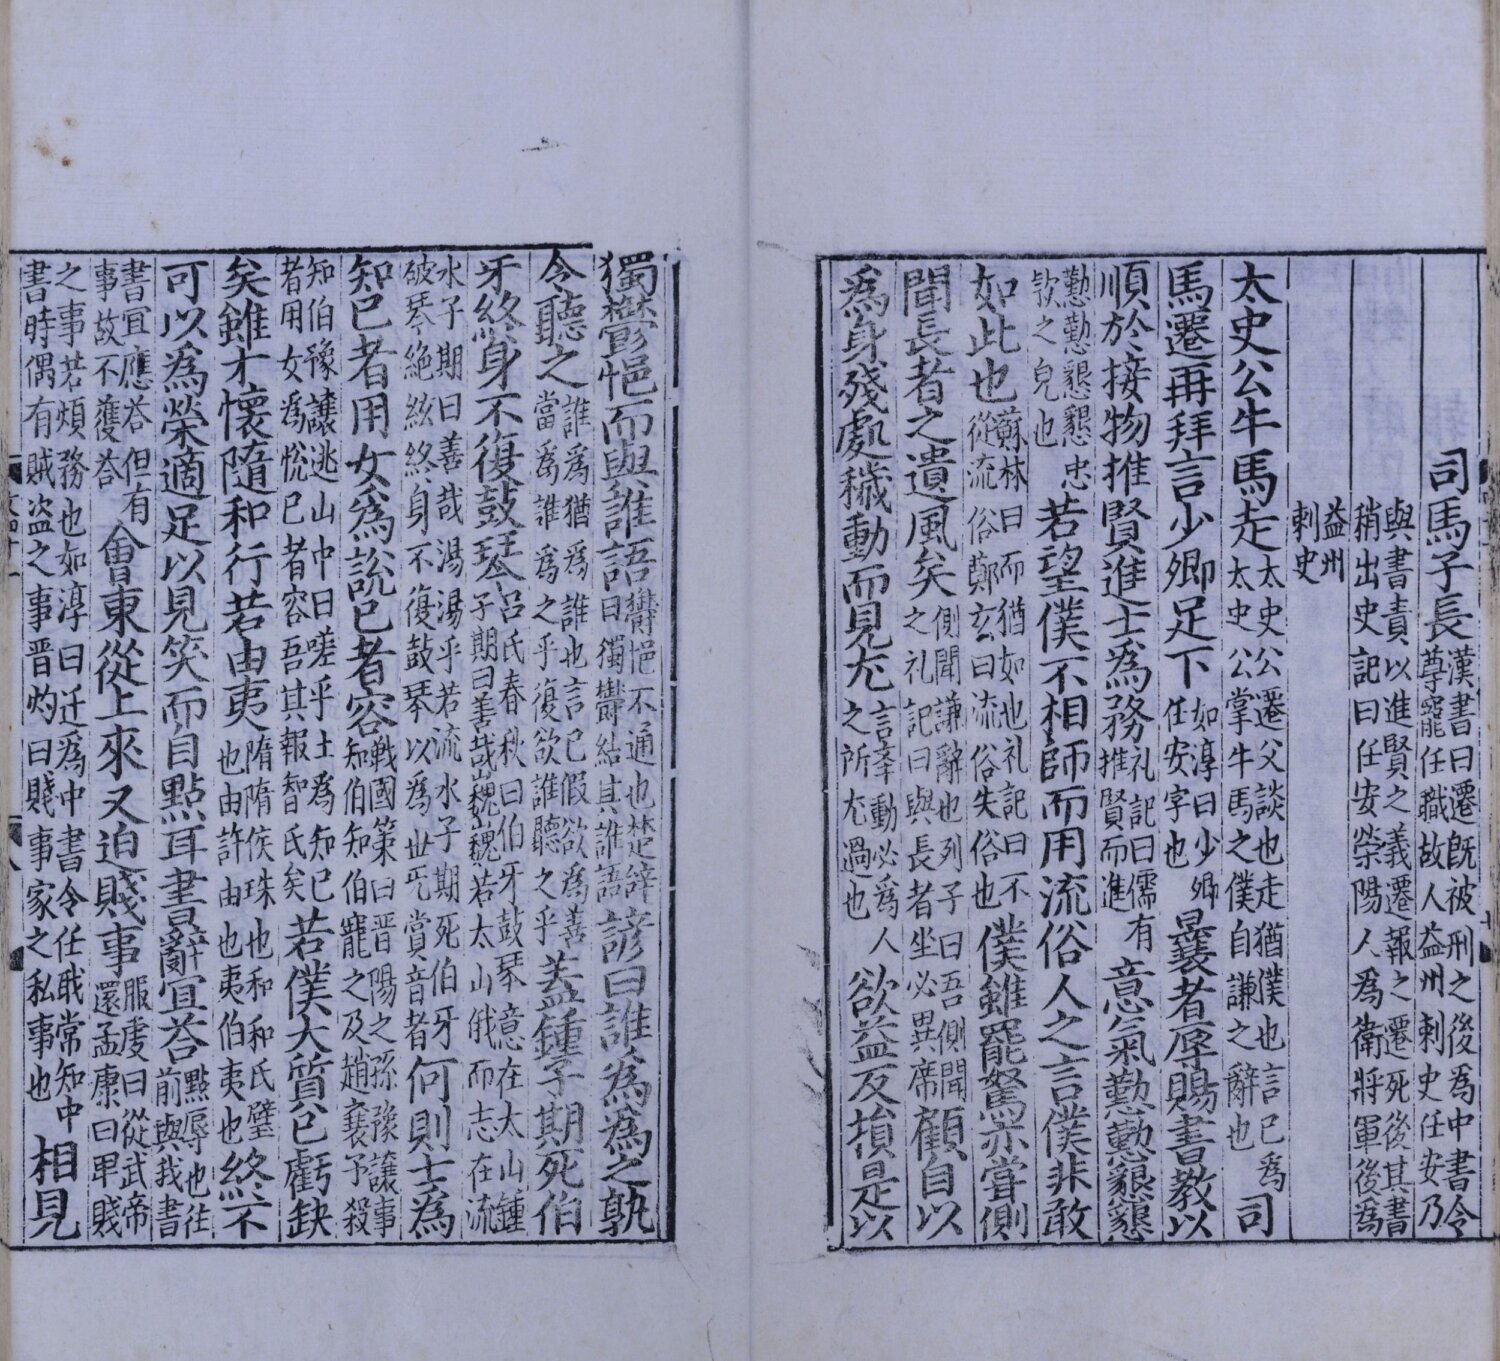 司馬子長漢書曰遷旣被刑之後為中書令尊寵任職故人益州刺史任安乃
與書責以進賢之義遷報之遷死後其書稍出史記曰任安滎陽人為衛將軍後為
益州刺史
太史公牛馬走太史公遷父談也走猶僕也言己為太史公掌牛馬之僕自謙之辭也司
馬遷再拜言少卿足下如淳曰少卿任安字也曩者辱賜書教以
順於接物推賢進士為務礼記曰儒有推賢而進意氣懃懃懇懇
懃懃懇懇忠款之皃也若望僕不相師而用流俗人之言僕非敢
如此也蘇林曰而猶如也礼記曰不從流俗鄭玄曰流俗失俗也僕雖罷駑亦嘗側
聞長者之遺風矣側聞謙辭也列子曰吾側聞之礼記曰與長者坐必異席顧自以
為身殘處穢動而見尤言舉動必為人之所尤過也欲益反損是以
獨鬱悒而與誰語鬱悒不通也楚辭曰獨鬱結其誰語諺曰誰為為之孰
令聽之誰為猶為誰也言己假欲為善當為誰為之乎復欲誰聽之乎蓋鍾子期死伯
牙終身不復鼓琴呂氏春秋曰伯牙鼓琴意在太山鍾子期曰善哉巍巍若太山俄而志在流
水子期曰善哉湯湯乎若流水子期死伯牙破琴絶絃終身不復鼓琴以為世无賞音者何則士為
知己者用女為說己者容戰國策曰晉陽之孫豫讓事知伯知伯寵之及趙襄子殺
知伯豫讓逃山中曰嗟乎士為知己者用女為悅己者容吾其報智氏矣若僕大質已虧缺
矣雖才懷隋和行若由夷隋隋侯珠也和和氏璧也由許由也夷伯夷也終不
可以為榮適足以見笑而自點耳書辭宜荅點辱也往前與我書
書宜應荅但有事故不獲荅會東從上來又迫賤事服虔曰從武帝還孟康曰卑賤
之事若煩務也如淳曰迁為中書令任職常知中書時偶有賊盗之事晉灼曰賤事家之私事也相見